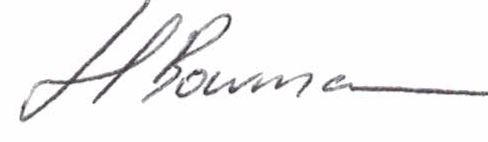 H Bowman